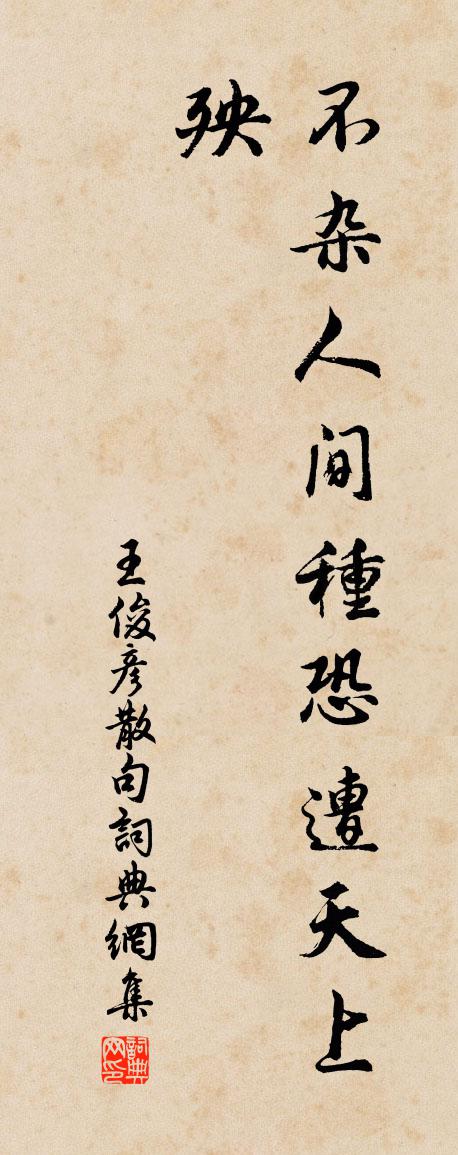 不杂人间種恐遭天上
殃
王俊彦散句詞典網集
詞典
网印